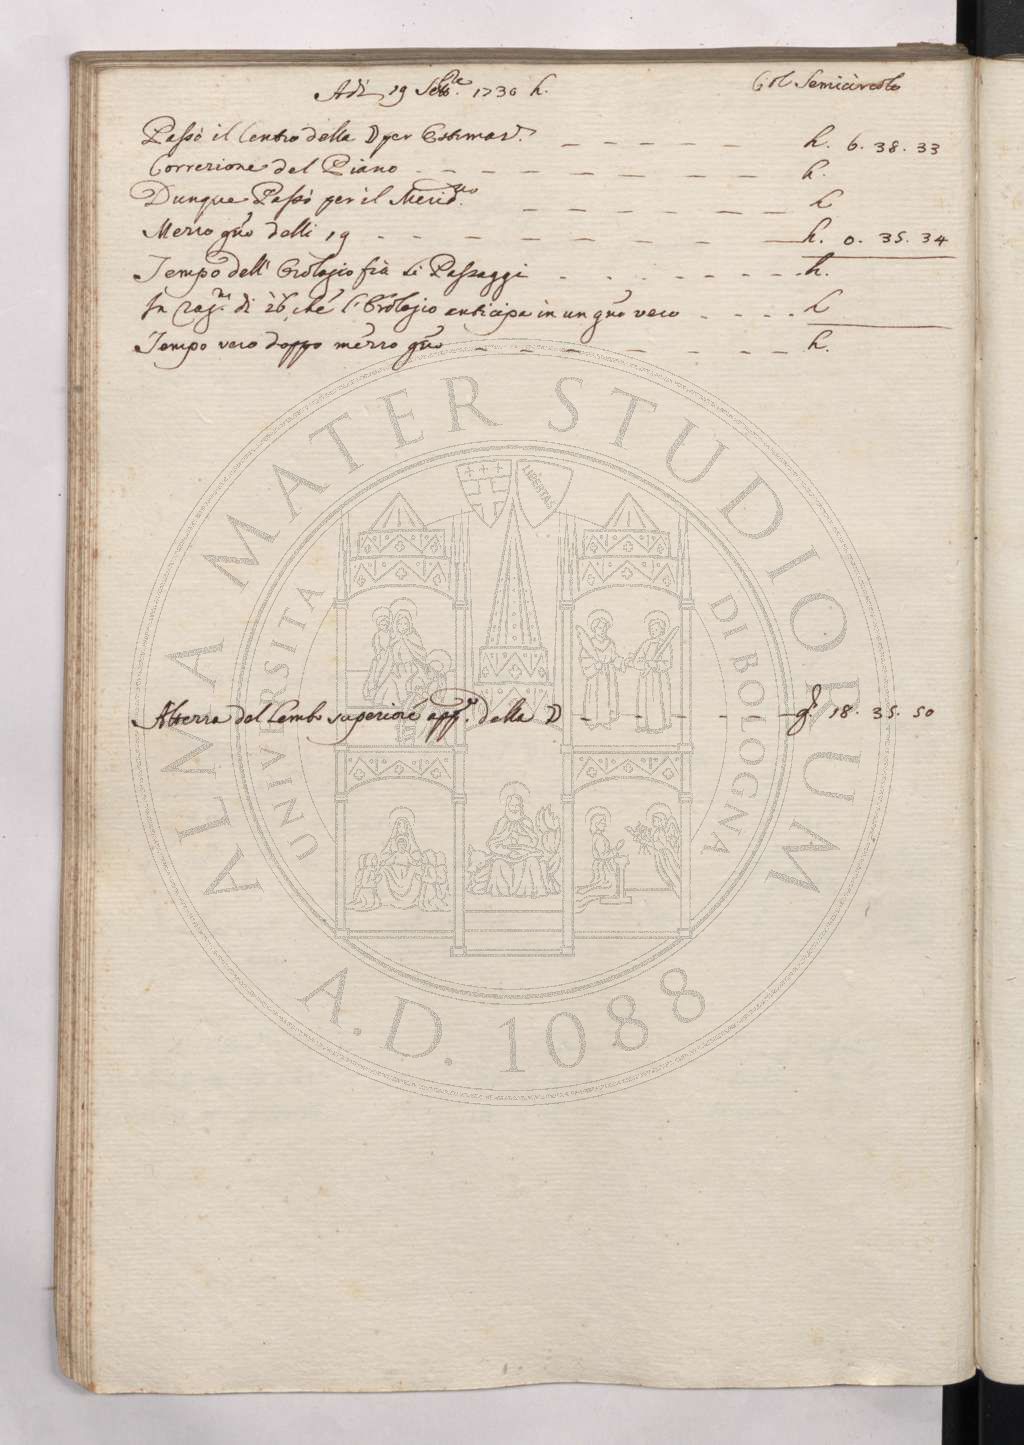 Adì 19 Setb.re 1730 h. Col Semicircolo
Passò il Centro della ☽ per Estimaz.e — — — — — h. 6. 38. 33
Correzione del Piano — — — — — — — h.
Dunque Passò per il Merid.no — — — — — — h
Mezzo gno delli 19 — — — — — — — h. 0. 35. 34
Tempo dell' Orologio frà li Passaggi — — — — — — h.
In rag.ne di 26 che l'Orologio anticipa in un gno vero — — — — h
Tempo vero doppo mezzo gno — — — — — — — h.
ALMA MATER STUDIORUM
UNIVERSITA DI BOLOGNA
LIBERTAS
Altezza del Lembo superiore app.e della ☽ — — — — — g. 18. 35. 50
A.D. 1088